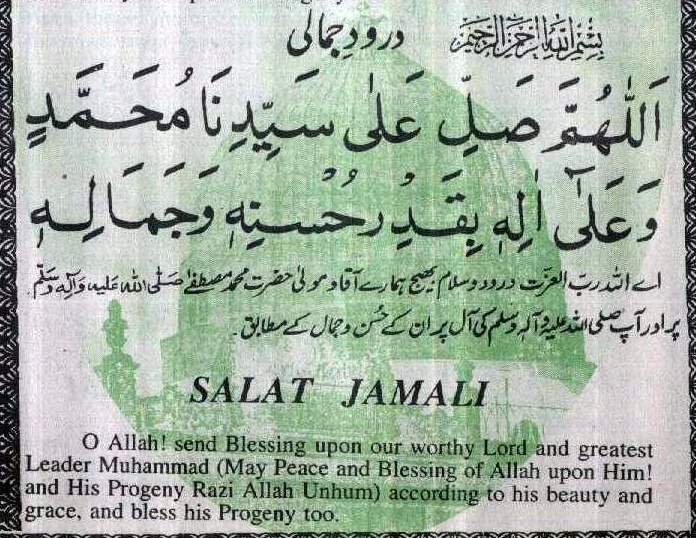 بِسْمِ اللهِ الرَّحْمٰنِ الرَّحِيْمِ
درودِ جمالی
اَللّٰهُمَّ صَلِّ عَلٰى سَيِّدِنَا مُحَمَّدٍ
وَعَلٰٓى اٰلِهٖ بِقَدْرِ حُسْنِهٖ وَجَمَالِهٖ
اے اللہ ربّ العزّت درود و سلام بھیج ہمارے آقا و مولیٰ حضرت محمد مصطفےٰ صَلَّی اللہُ عَلَیہِ وَآلِہٖ وَسَلَّم
پر اور آپ صلی اللہ علیہ وآلہ وسلم کی آل پر ان کے حُسن و جمال کے مطابق۔
SALAT JAMALI
O Allah! send Blessing upon our worthy Lord and greatest
Leader Muhammad (May Peace and Blessing of Allah upon Him!
and His Progeny Razi Allah Unhum) according to his beauty and
grace, and bless his Progeny too.